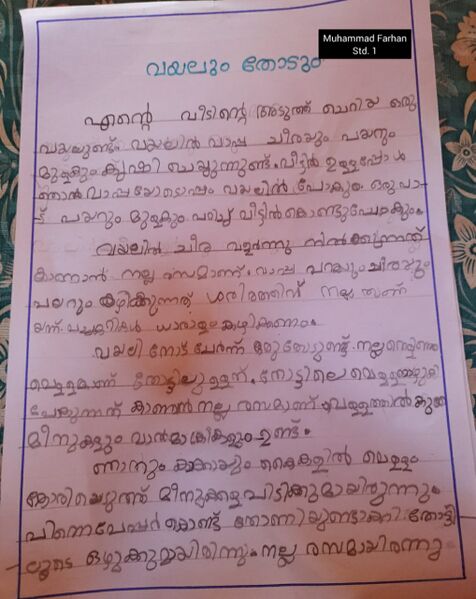 Muhammad Farhan
Std. 1
വയലും തോടും
എന്റെ വീടിന്റെ അടുത്ത് ചെറിയ ഒരു
വയലുണ്ട്. വയലിൽ വാപ്പ ചീരയും പയറും
മുളകും കൃഷി ചെയ്യുന്നുണ്ട്. വീട്ടിൽ ഉള്ളപ്പോൾ
ഞാൻ വാപ്പയോടൊപ്പം വയലിൽ പോകും. ഒരുപാ-
ട് പയറും മുളകും പറിച്ച് വീട്ടിൽ കൊണ്ടുപോകും.
വയലിൽ ചീര വളർന്നു നിൽക്കുന്നത്
കാണാൻ നല്ല രസമാണ്. വാപ്പ പറയും ചീരയും
പയറും കഴിക്കുന്നത് ശരിരത്തിന് നല്ല
പച്ചക്കറികൾ ധാരാളം കഴിക്കണം.
വയലിനോട് ചേർന്ന്
വെള്ളമാണ് തോട്ടിലുള്ളത്. തോട്ടിലെ
പോകുന്നത് കാണാൻ നല്ല രസമാണ്. വെള്ളത്തിൽ
മീനുകളും വാൽമാക്രികളും ഉണ്ട്.
ഞാനും കാക്കായും കൈകളിൽ വെള്ളം
കോരിയെടുത്ത് മീനുകളെ പിടിക്കുമായിരുന്നും
പിന്നെ പേപ്പർ കൊണ്ട് തോണിയുണ്ടാക്കി തോട്ടി
ലൂടെ ഒഴുക്കുമായിരിന്നും. നല്ല രസമായിരന്നു